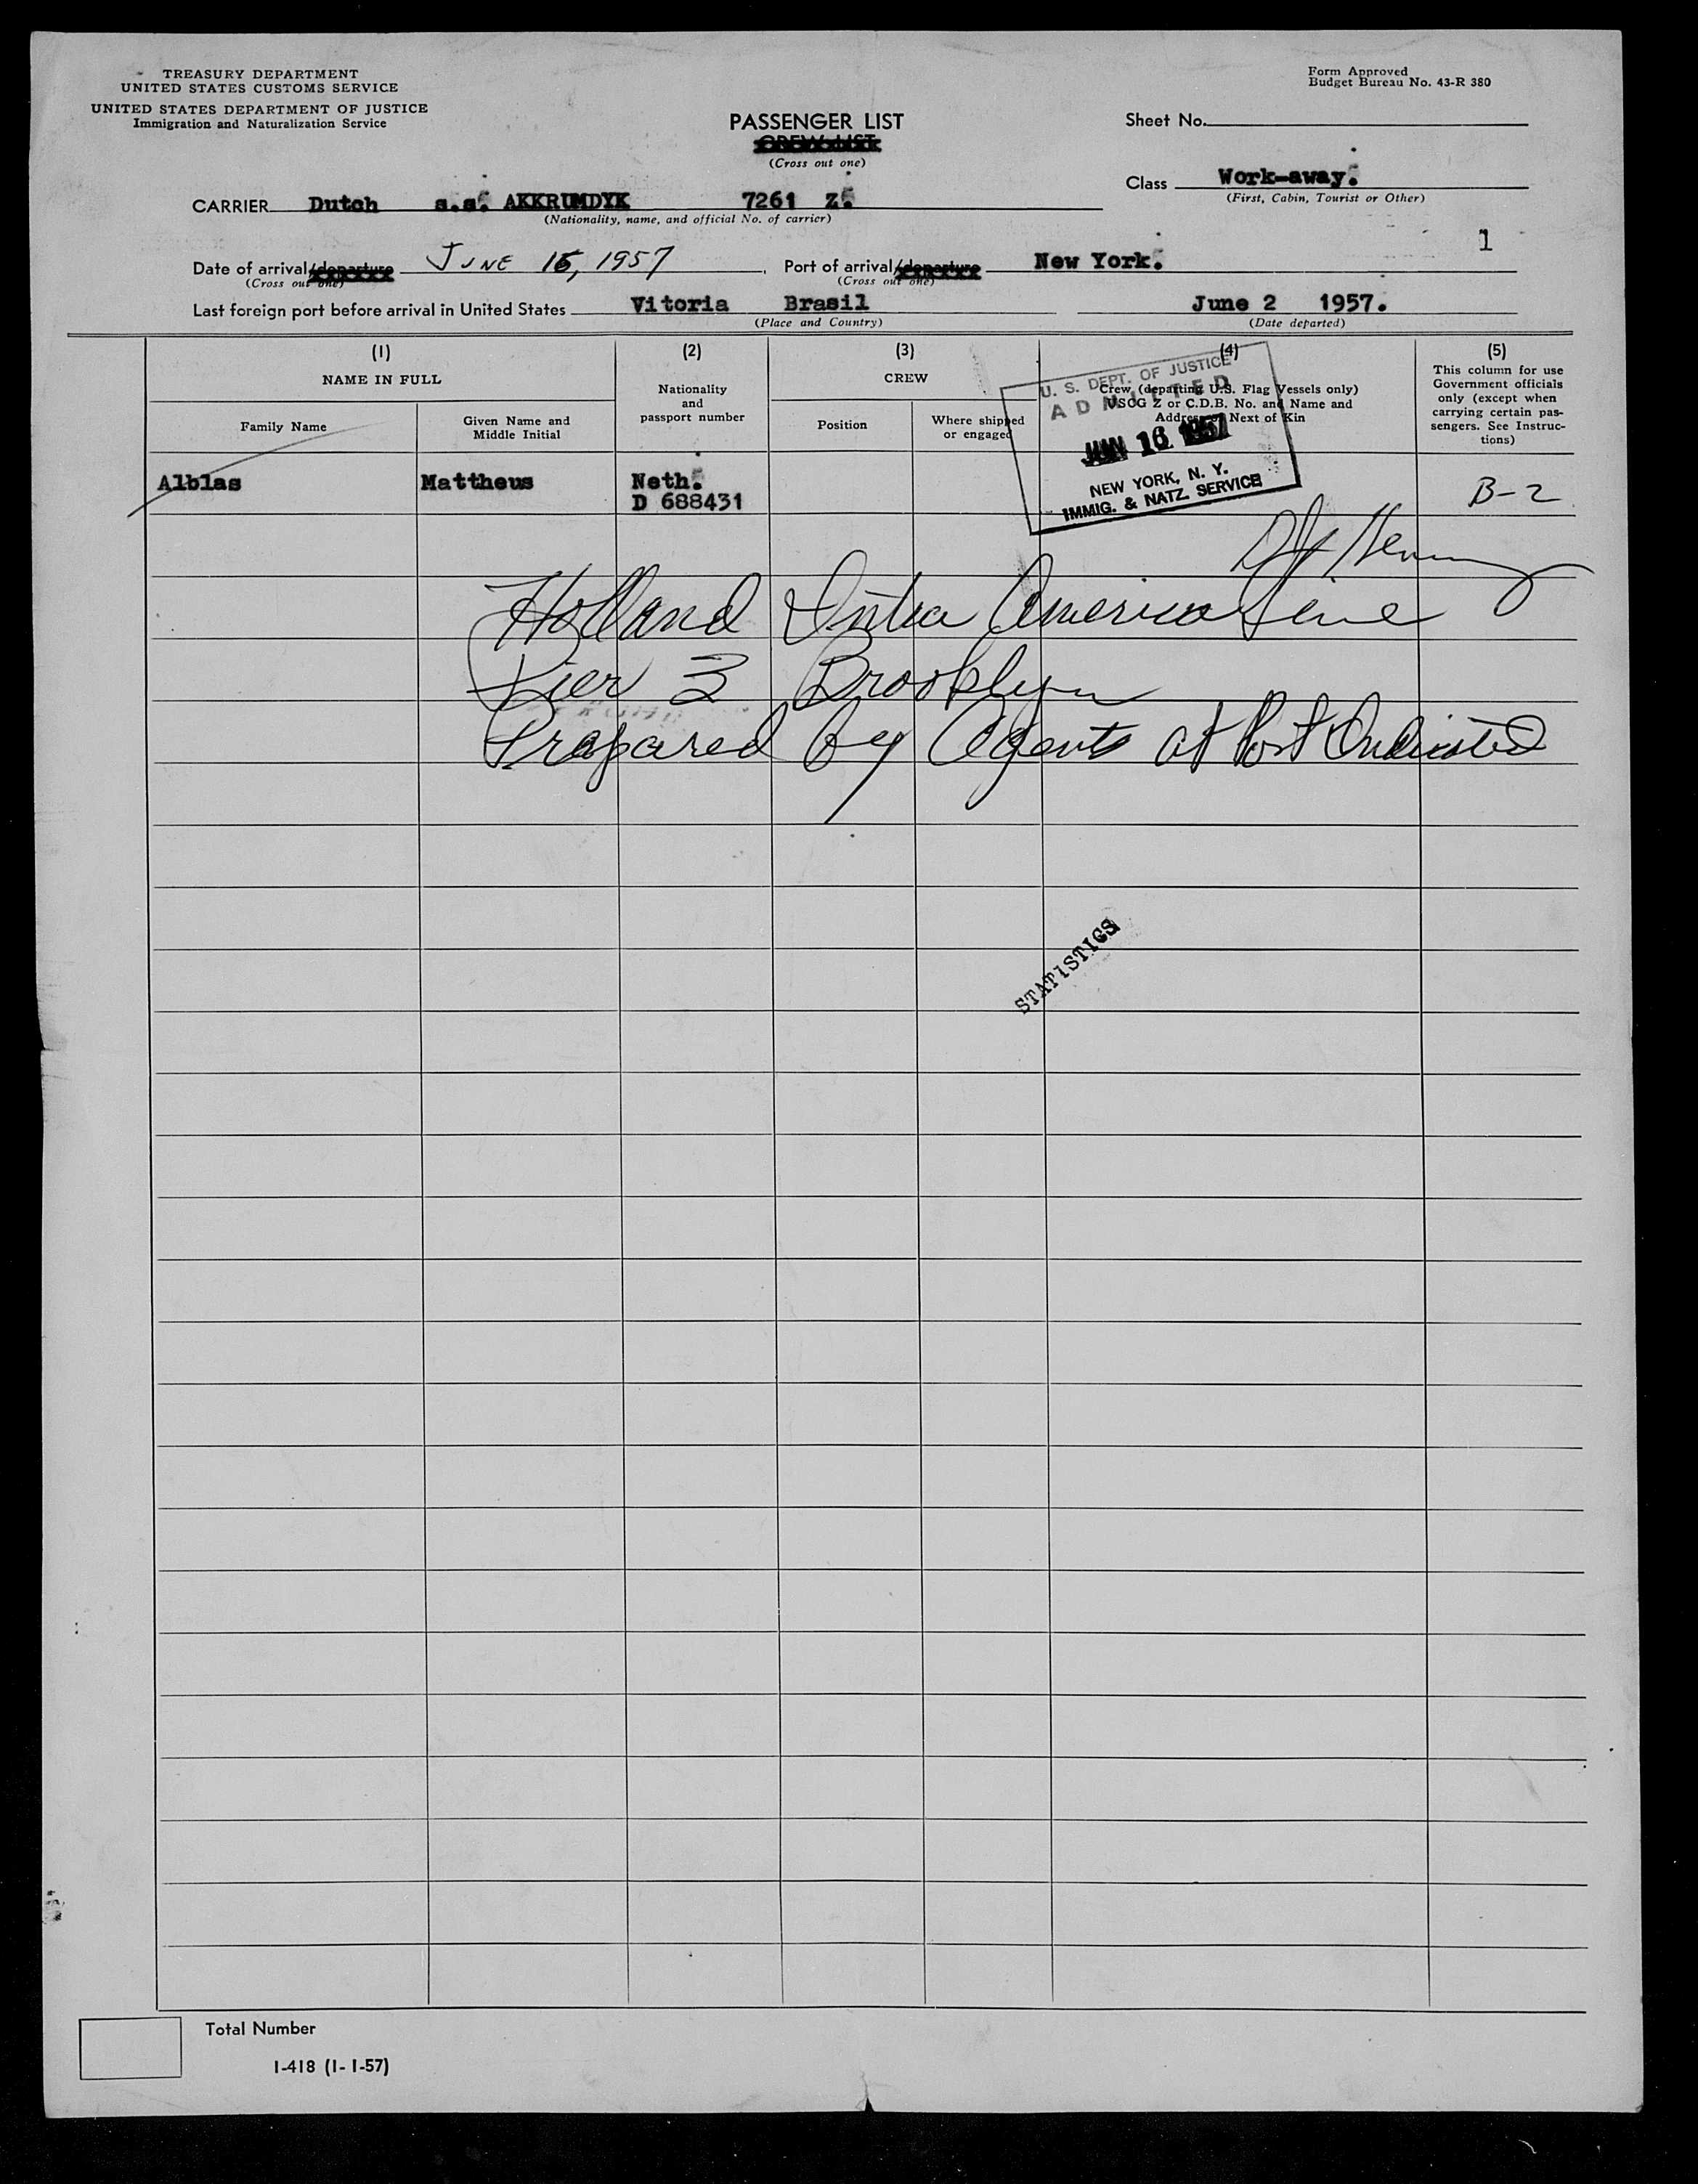 TREASURY DEPARTMENT
UNITED STATES CUSTOMS SERVICE
UNITED STATES DEPARTMENT OF JUSTICE
Immigration and Naturalization Service
Form Approved
Budget Bureau No. 43-R 380
PASSENGER LIST
CREW LIST
(Cross out one)
Sheet No.
Class Work-away.
(First, Cabin, Tourist or Other)
CARRIER Dutch s.s. AKKRUMDYK 7261 Z.
(Nationality, name, and official No. of carrier)
1
Date of arrival/departure JUNE 16, 1957, Port of arrival/departure New York.
(Cross out one) (Cross out one)
Last foreign port before arrival in United States Vitoria Brasil June 2 1957.
(Place and Country) (Date departed)
(1)
NAME IN FULL
Family Name
Given Name and
Middle Initial
(2)
Nationality
and
passport number
(3)
CREW
Position
Where shipped
or engaged
(4)
Crew (departing U.S. Flag Vessels only)
USCG Z or C.D.B. No. and Name and
Address of Next of Kin
(5)
This column for use
Government officials
only (except when
carrying certain pas-
sengers. See Instruc-
tions)
U. S. DEPT. OF JUSTICE
ADMITTED
JUN 16 1957
NEW YORK, N. Y.
IMMIG. & NATZ. SERVICE
Alblas Mattheus Neth. B-2
D 688431
Holland Intra America Line
Pier 3 Brooklyn
Prepared by Agents at Port Indicated
STATISTICS
Total Number
I-418 (1-1-57)